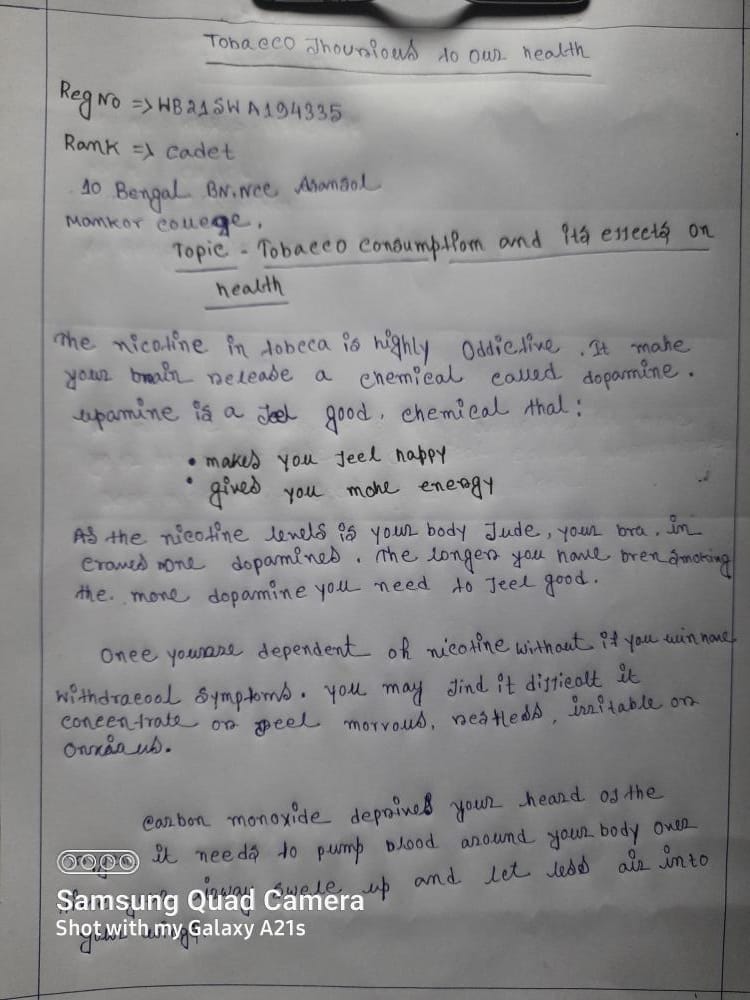 Tobacco Jhourious to our health
Reg No => WB21SWA194335
Rank => cadet
10 Bengal BN.Ncc Asansol
Mankor couege,
Topic - Tobacco consumption and its effects on
health
The nicotine in tobcca is highly Oddictive. It make
your brain release a chemical called dopamine.
upamine is a feel good, chemical that:
• makes you feel happy
• gives you more energy
As the nicotine levels is your body fude, your bra.in
craves more dopamines. The longer you have bren smoking
the. more dopamine you need to feel good.
Once youare dependent oh nicotine without it you win have
withdracool symptoms. you may find it difficalt it
concentrate or feel morvous, restless, irritable or
onxious.
carbon monoxide deprives your heard of the
it needs to pump blood around your body over
swele up and let less air into
Samsung Quad Camera
Shot with my Galaxy A21s